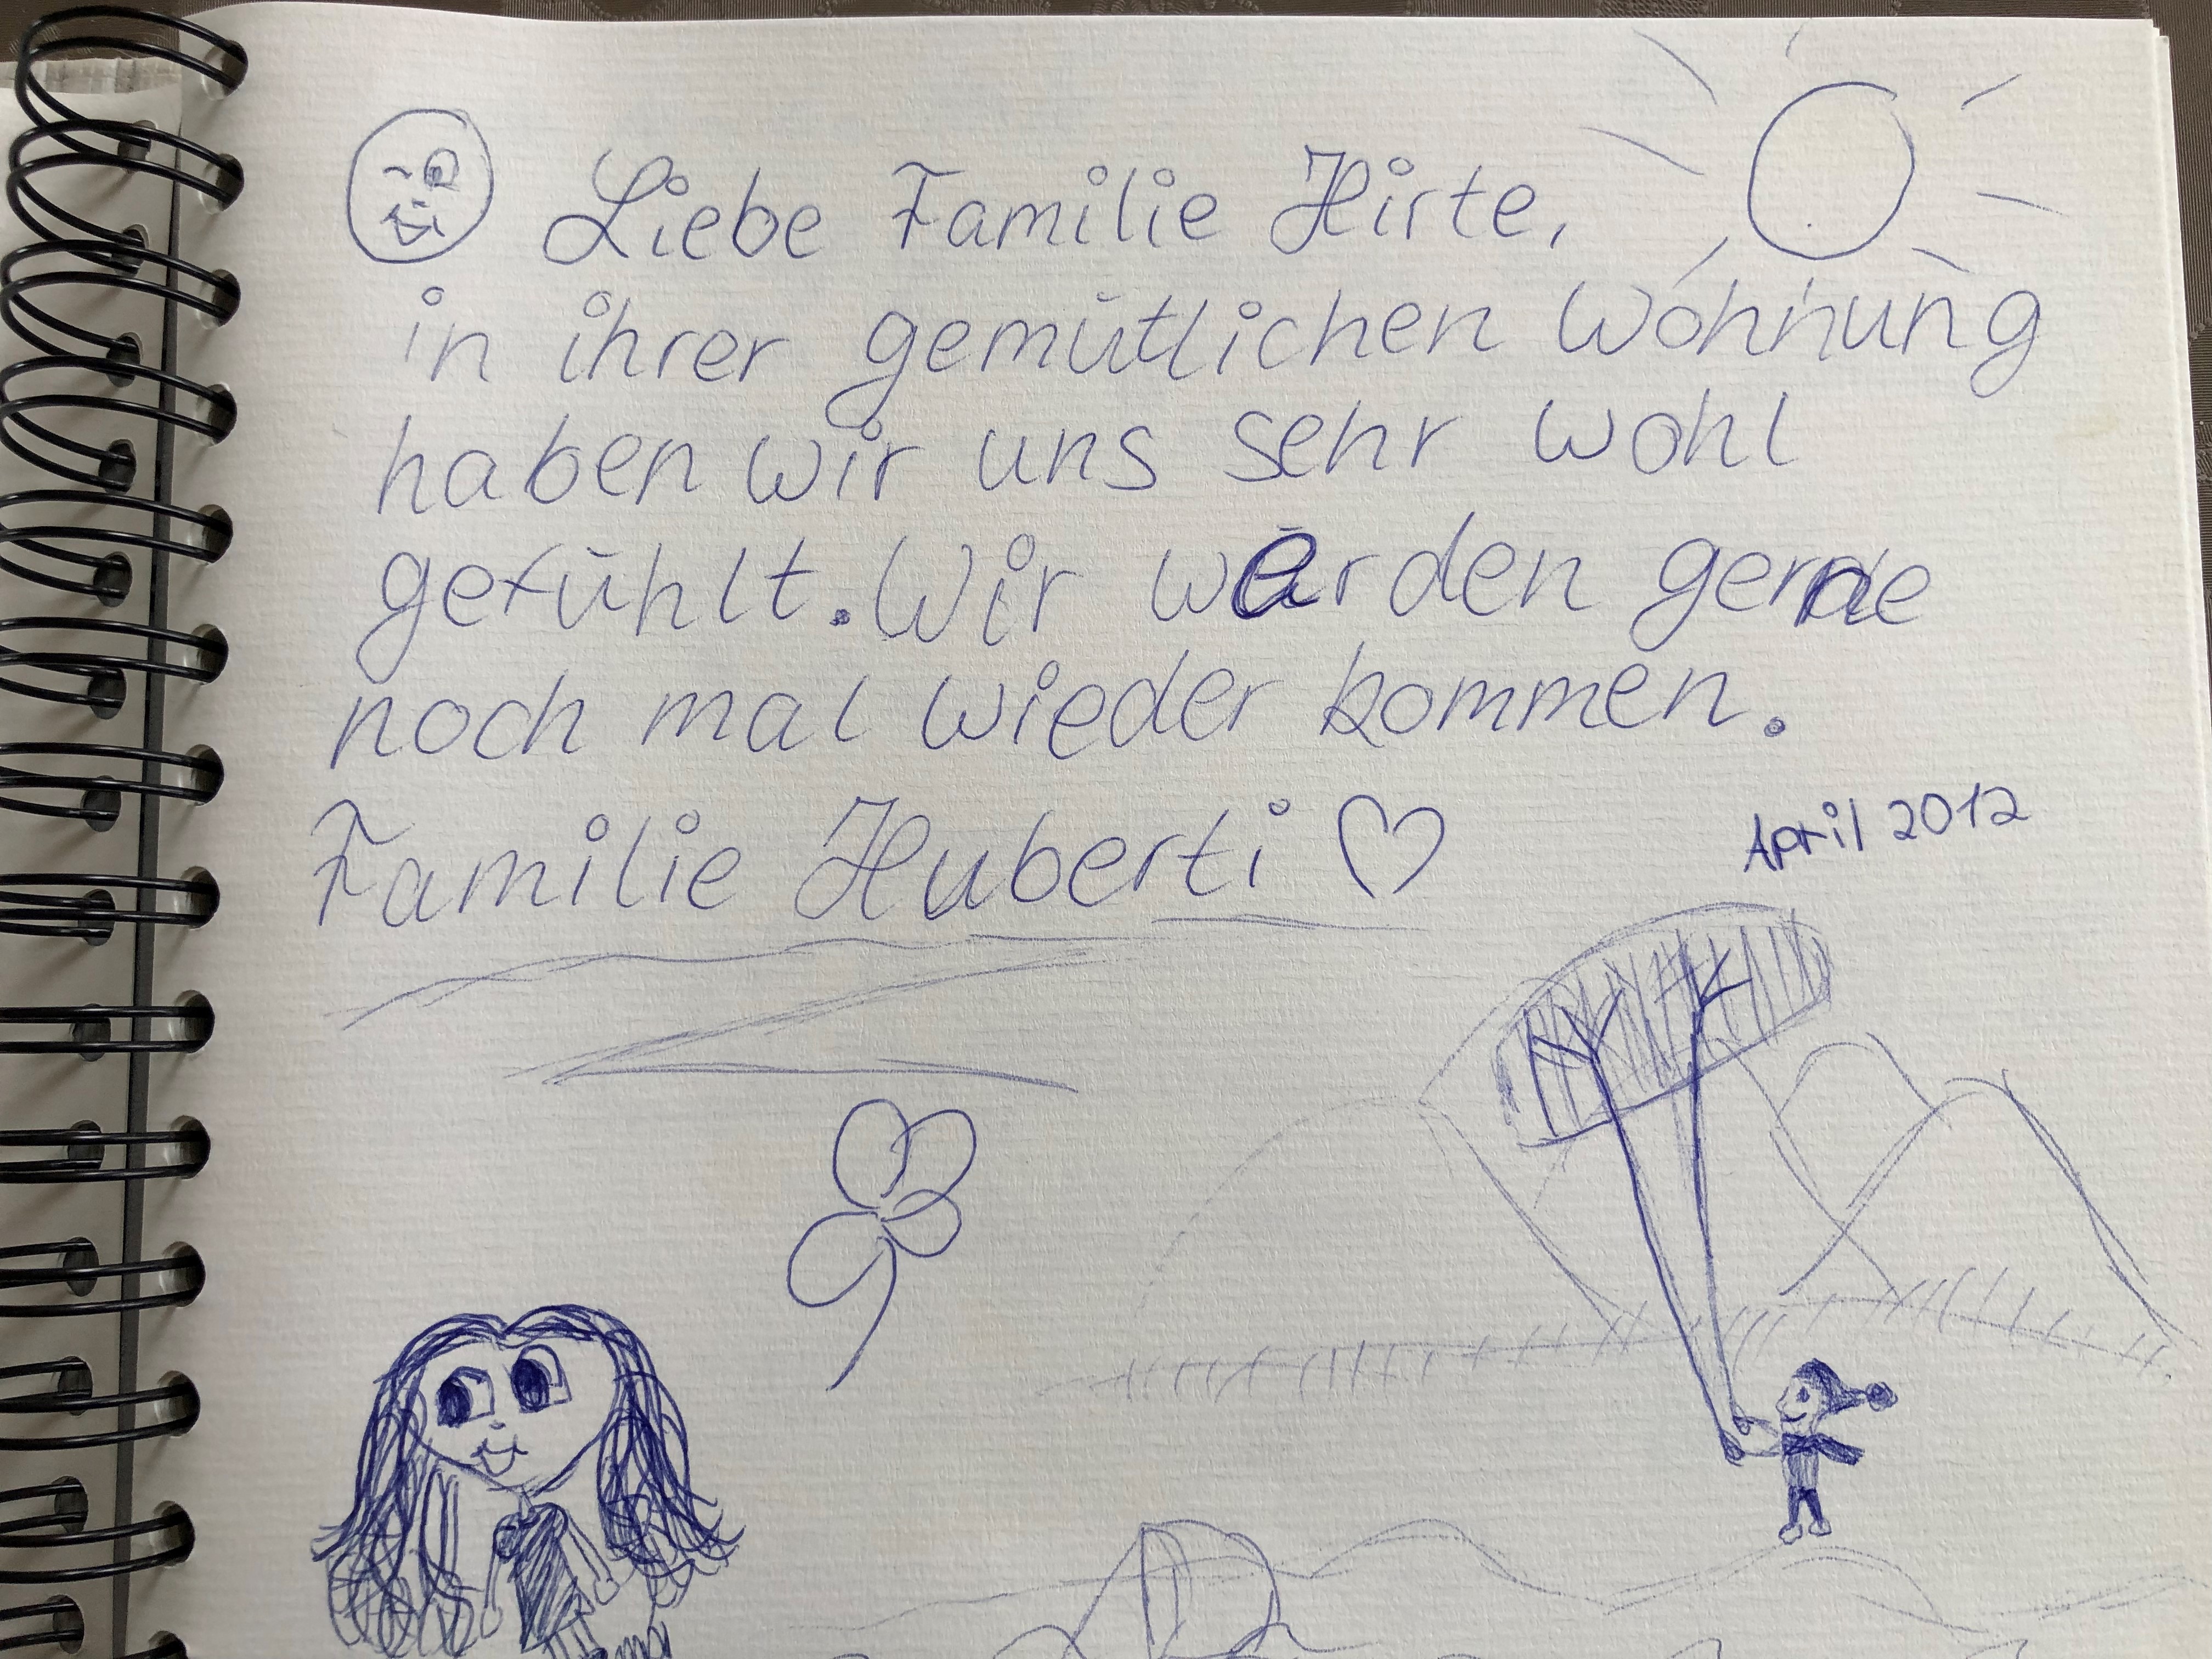 Liebe Familie Hirte,
in ihrer gemütlichen Wohnung
haben wir uns sehr wohl
gefühlt. Wir werden gerne
noch mal wieder kommen.
Familie Huberti ♡
April 2012